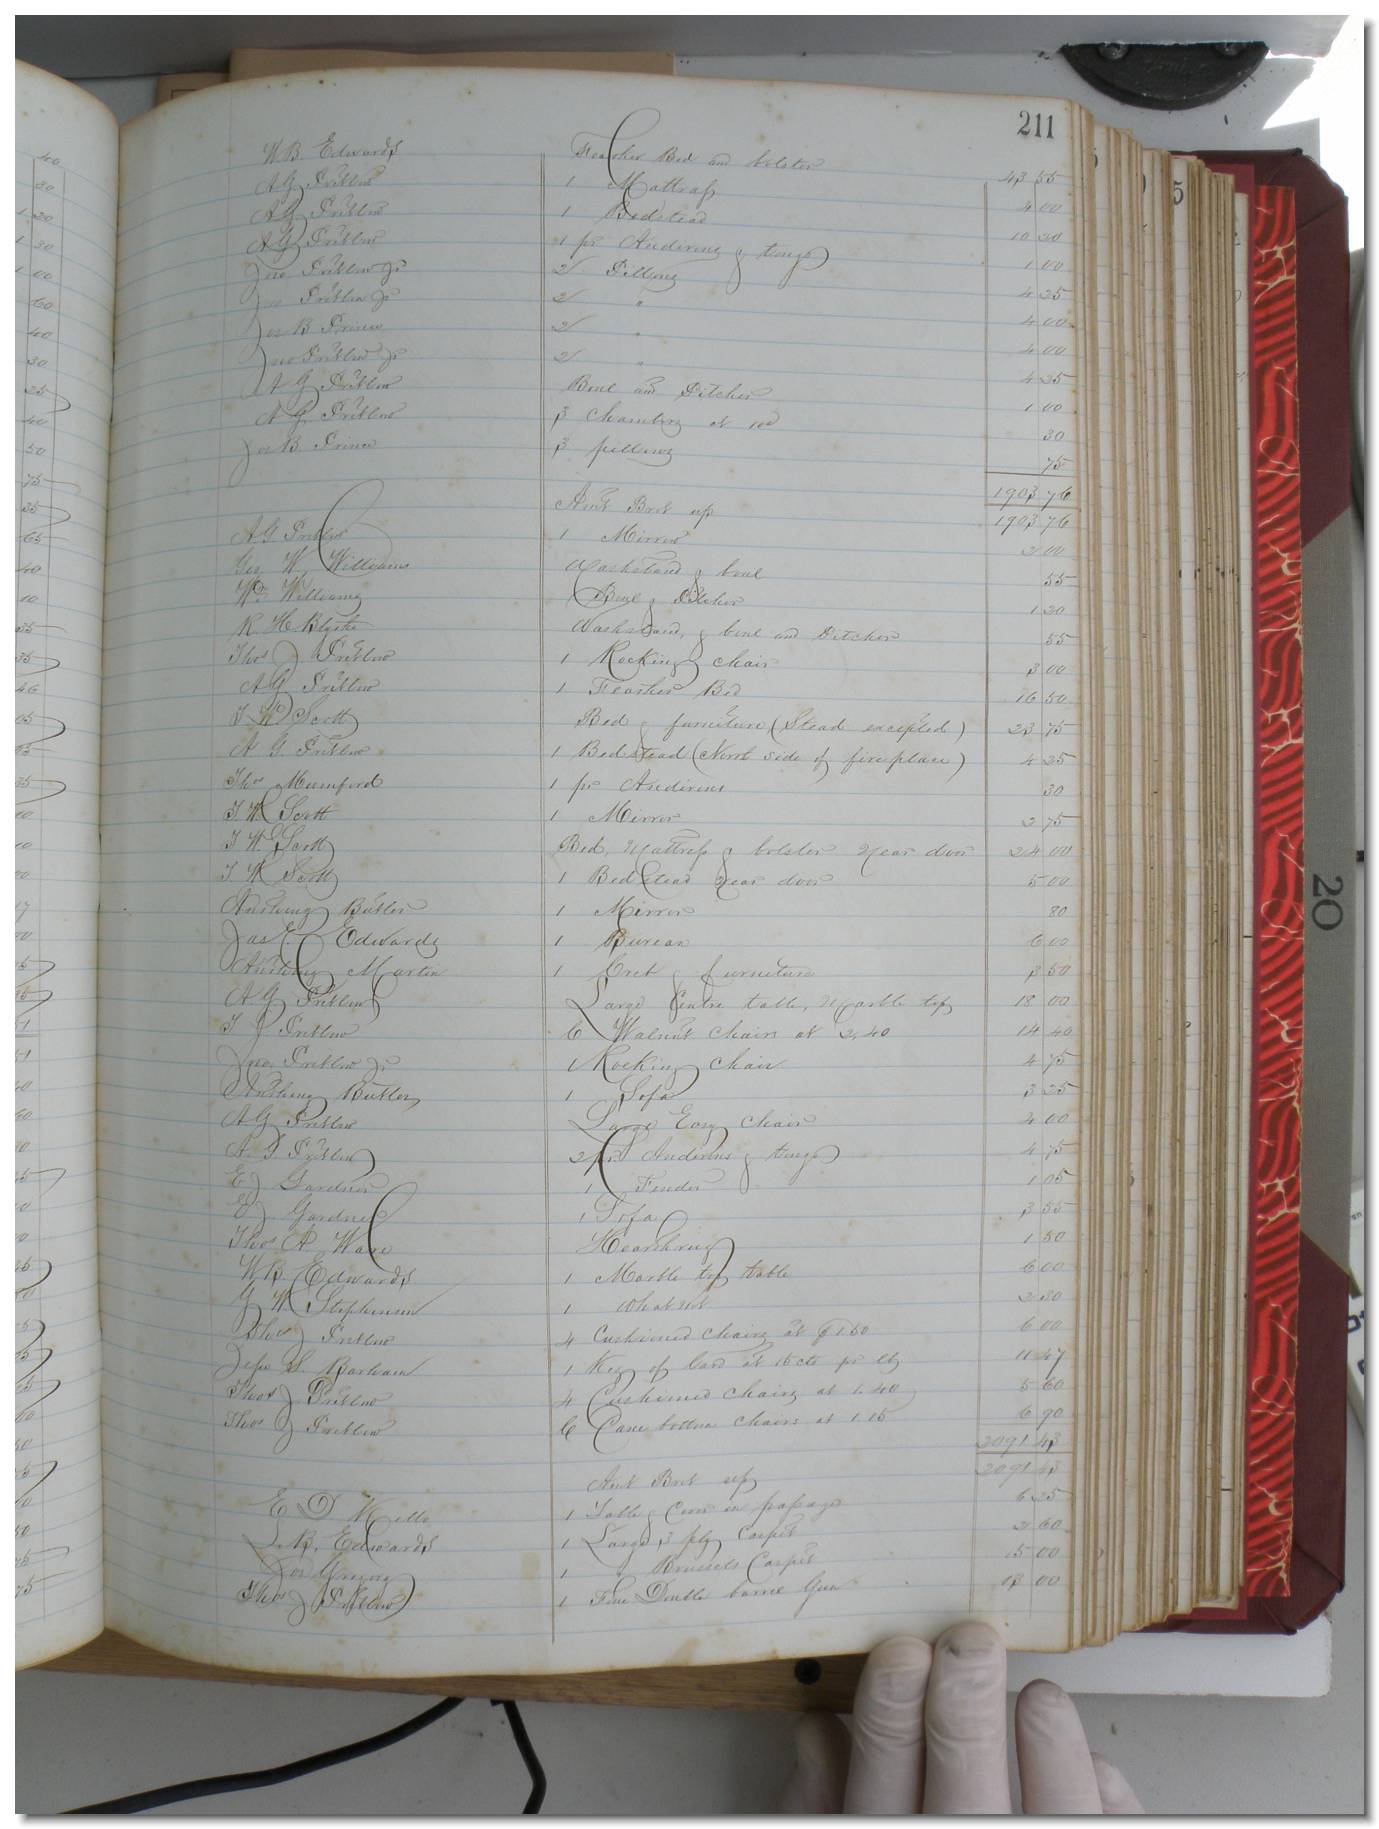 211
W B Edwards Feather Bed and bolster 43 55
A G Pretlow 1 Mattrass 4 00
A G Pretlow 1 Bedstead 10 20
A G Pretlow 1 pr Andirons & tongs 1 00
Jno Pretlow Jr 2 Pillows 4 25
Jno Pretlow Jr 2 " 4 00
Jos B Prince 2 " 4 00
Jno Pretlow Jr 2 " 4 25
A G Pretlow Bowl and Pitcher 1 00
A G Pretlow 3 Chambers at 10c 30
Jos B Prince 3 pillows 75
1903 76
Amt Brot up 1903 76
A G Pretlow 1 Mirror 2 00
Geo W Williams Washstand & bowl 55
Wm Williams Bowl & Pitcher 1 20
R. H. Blythe Washstand, & bowl and Pitcher 55
Thos J Pretlow 1 Rocking chair 3 00
A G Pretlow 1 Feather Bed 16 50
T W Scott Bed & furniture (Stead excepted) 23 75
A G. Pretlow 1 Bedstead (North side of fireplace) 4 25
Thos Mumford 1 pr Andirons 30
T. W. Scott 1 Mirror 2 75
T W Scott Bed, Mattrass & bolster Near door 24 00
T W Scott 1 Bedstead near door 5 00
Anthony Butler 1 Mirror 80
Jas E. Edwards 1 Bureau 6 00
Anthony Martin 1 & furniture 3 50
A G Pretlow Large Centre table, Marble top 18 00
T J Pretlow 6 Walnut Chairs at 2,40 14 40
Jno, Pretlow Jr 1 Rocking Chair 4 75
Anthony Butler 1 Sofa 3 25
A G Pretlow Large Easy Chair 4 00
A. G Pretlow 2 pr Andirons & tongs 4 75
E J Gardner 1 Fender 1 05
E J Gardner 1 Sofa 3 55
Thos P Ware Hearthrug 1 50
W B Edwards 1 Marble top table 6 00
G W Stephenson 1 What not 2 30
Thos J Pretlow 4 Cushioned Chairs at $1.50 6 00
S. Barham 1 Keg of lard at 15 cts pr lb 11 47
Thos J Pretlow 4 Cushioned Chairs at 1.40 5 60
Thos J Pretlow 6 Cane bottom Chairs at 1.15 6 90
2091 43
Amt Brot up 2091 43
E D Mills 1 Table & Cover in passage 6 25
L. B. Edwards 1 Large 3 ply Carpet 2 60
Jos Gregory 1 Brussels Carpet 15 00
Thos J Pretlow 1 Fine Double barrel Gun 13 00
20